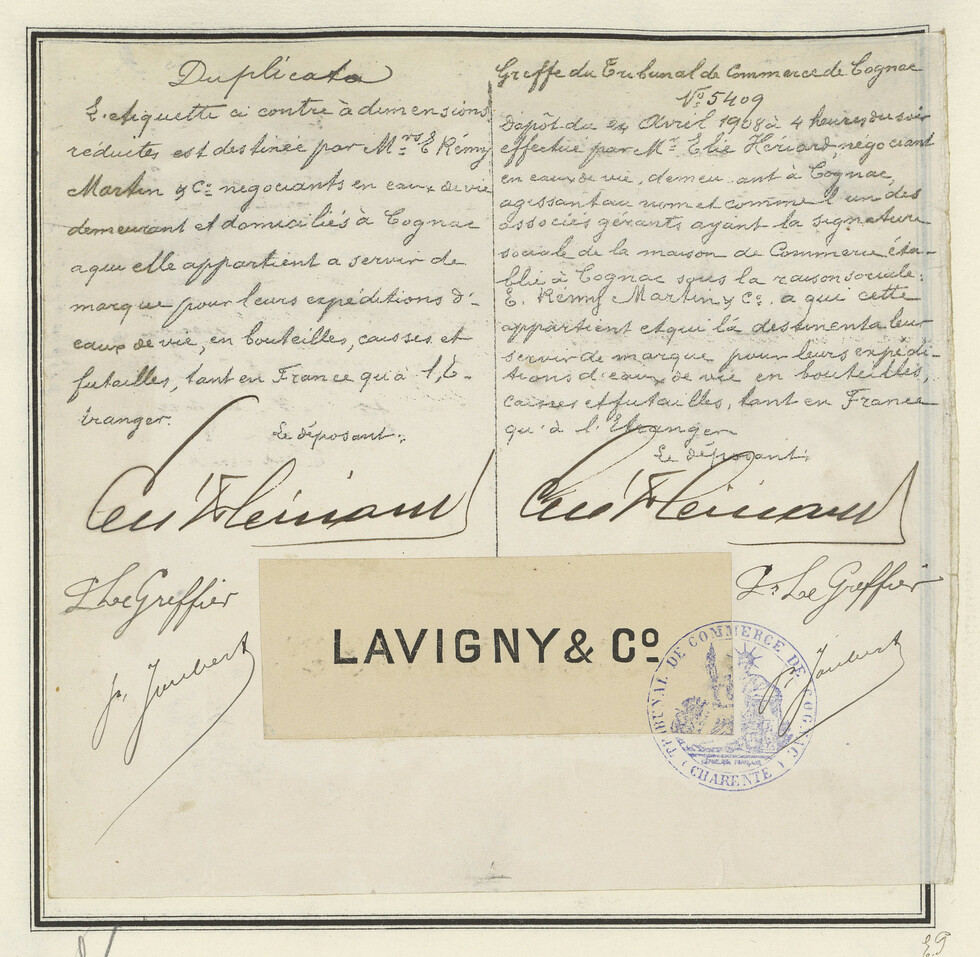 Duplicata
L'etiquette ci contre à dimensions
réduites est destinée par Mrs E Rémy
Martin & Co négociants en eaux de vie
demeurant et domiciliés à Cognac
a qui elle appartient a servir de
marque pour leurs expéditions d'-
eaux de vie, en bouteilles, caisses et
futailles, tant en France qu'à l'E-
tranger.
Le déposant:
Elie Hériard
Le Greffier
Joubert
Greffe du Tribunal de Commerce de Cognac
No 5409
Dépôt du 24 Avril 1908 à 4 heures du soir
effectué par Mr Elie Hériard, négociant
en eaux de vie, demeurant à Cognac,
agissant au nom et comme l'un des
associés gérants ayant la signature
sociale de la maison de Commerce éta-
blie à Cognac sous la raison sociale:
E. Rémy Martin & Co. a qui cette
appartient et qui la destinent a leur
servir de marque pour leurs expédi-
tions d'eaux de vie en bouteilles,
caisses et futailles, tant en France
qu'à l'Etranger
Le déposant:
Elie Hériard
Le Greffier
Joubert
LAVIGNY & Co
TRIBUNAL DE COMMERCE DE COGNAC
(CHARENTE)